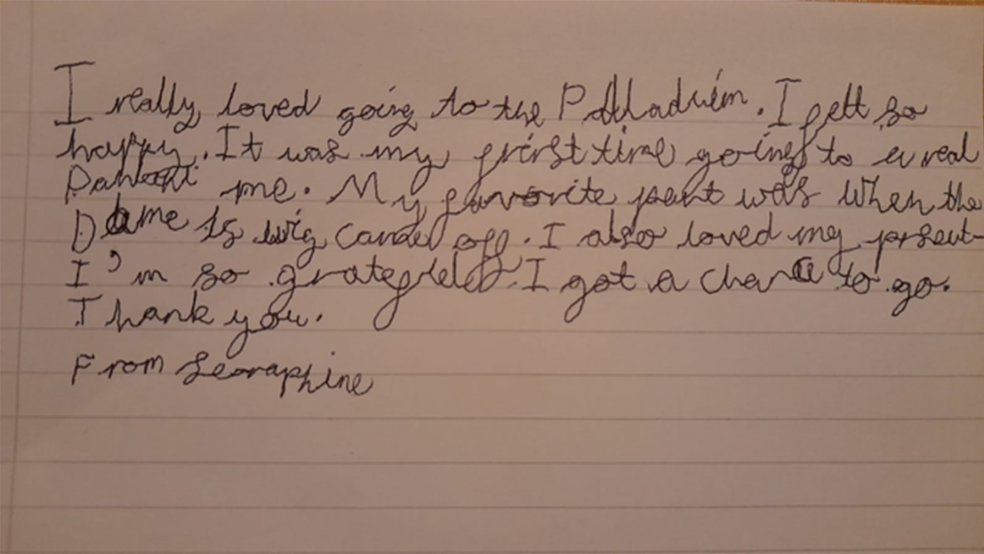 I really loved going to the Palladuim. I felt so
happy. It was my first time going to a real
Pantomi me. My favorite part was when the
Dame 1s wig came off. I also loved my present
I'm so grateful I got a chance to go.
Thank you.
From Searaphine